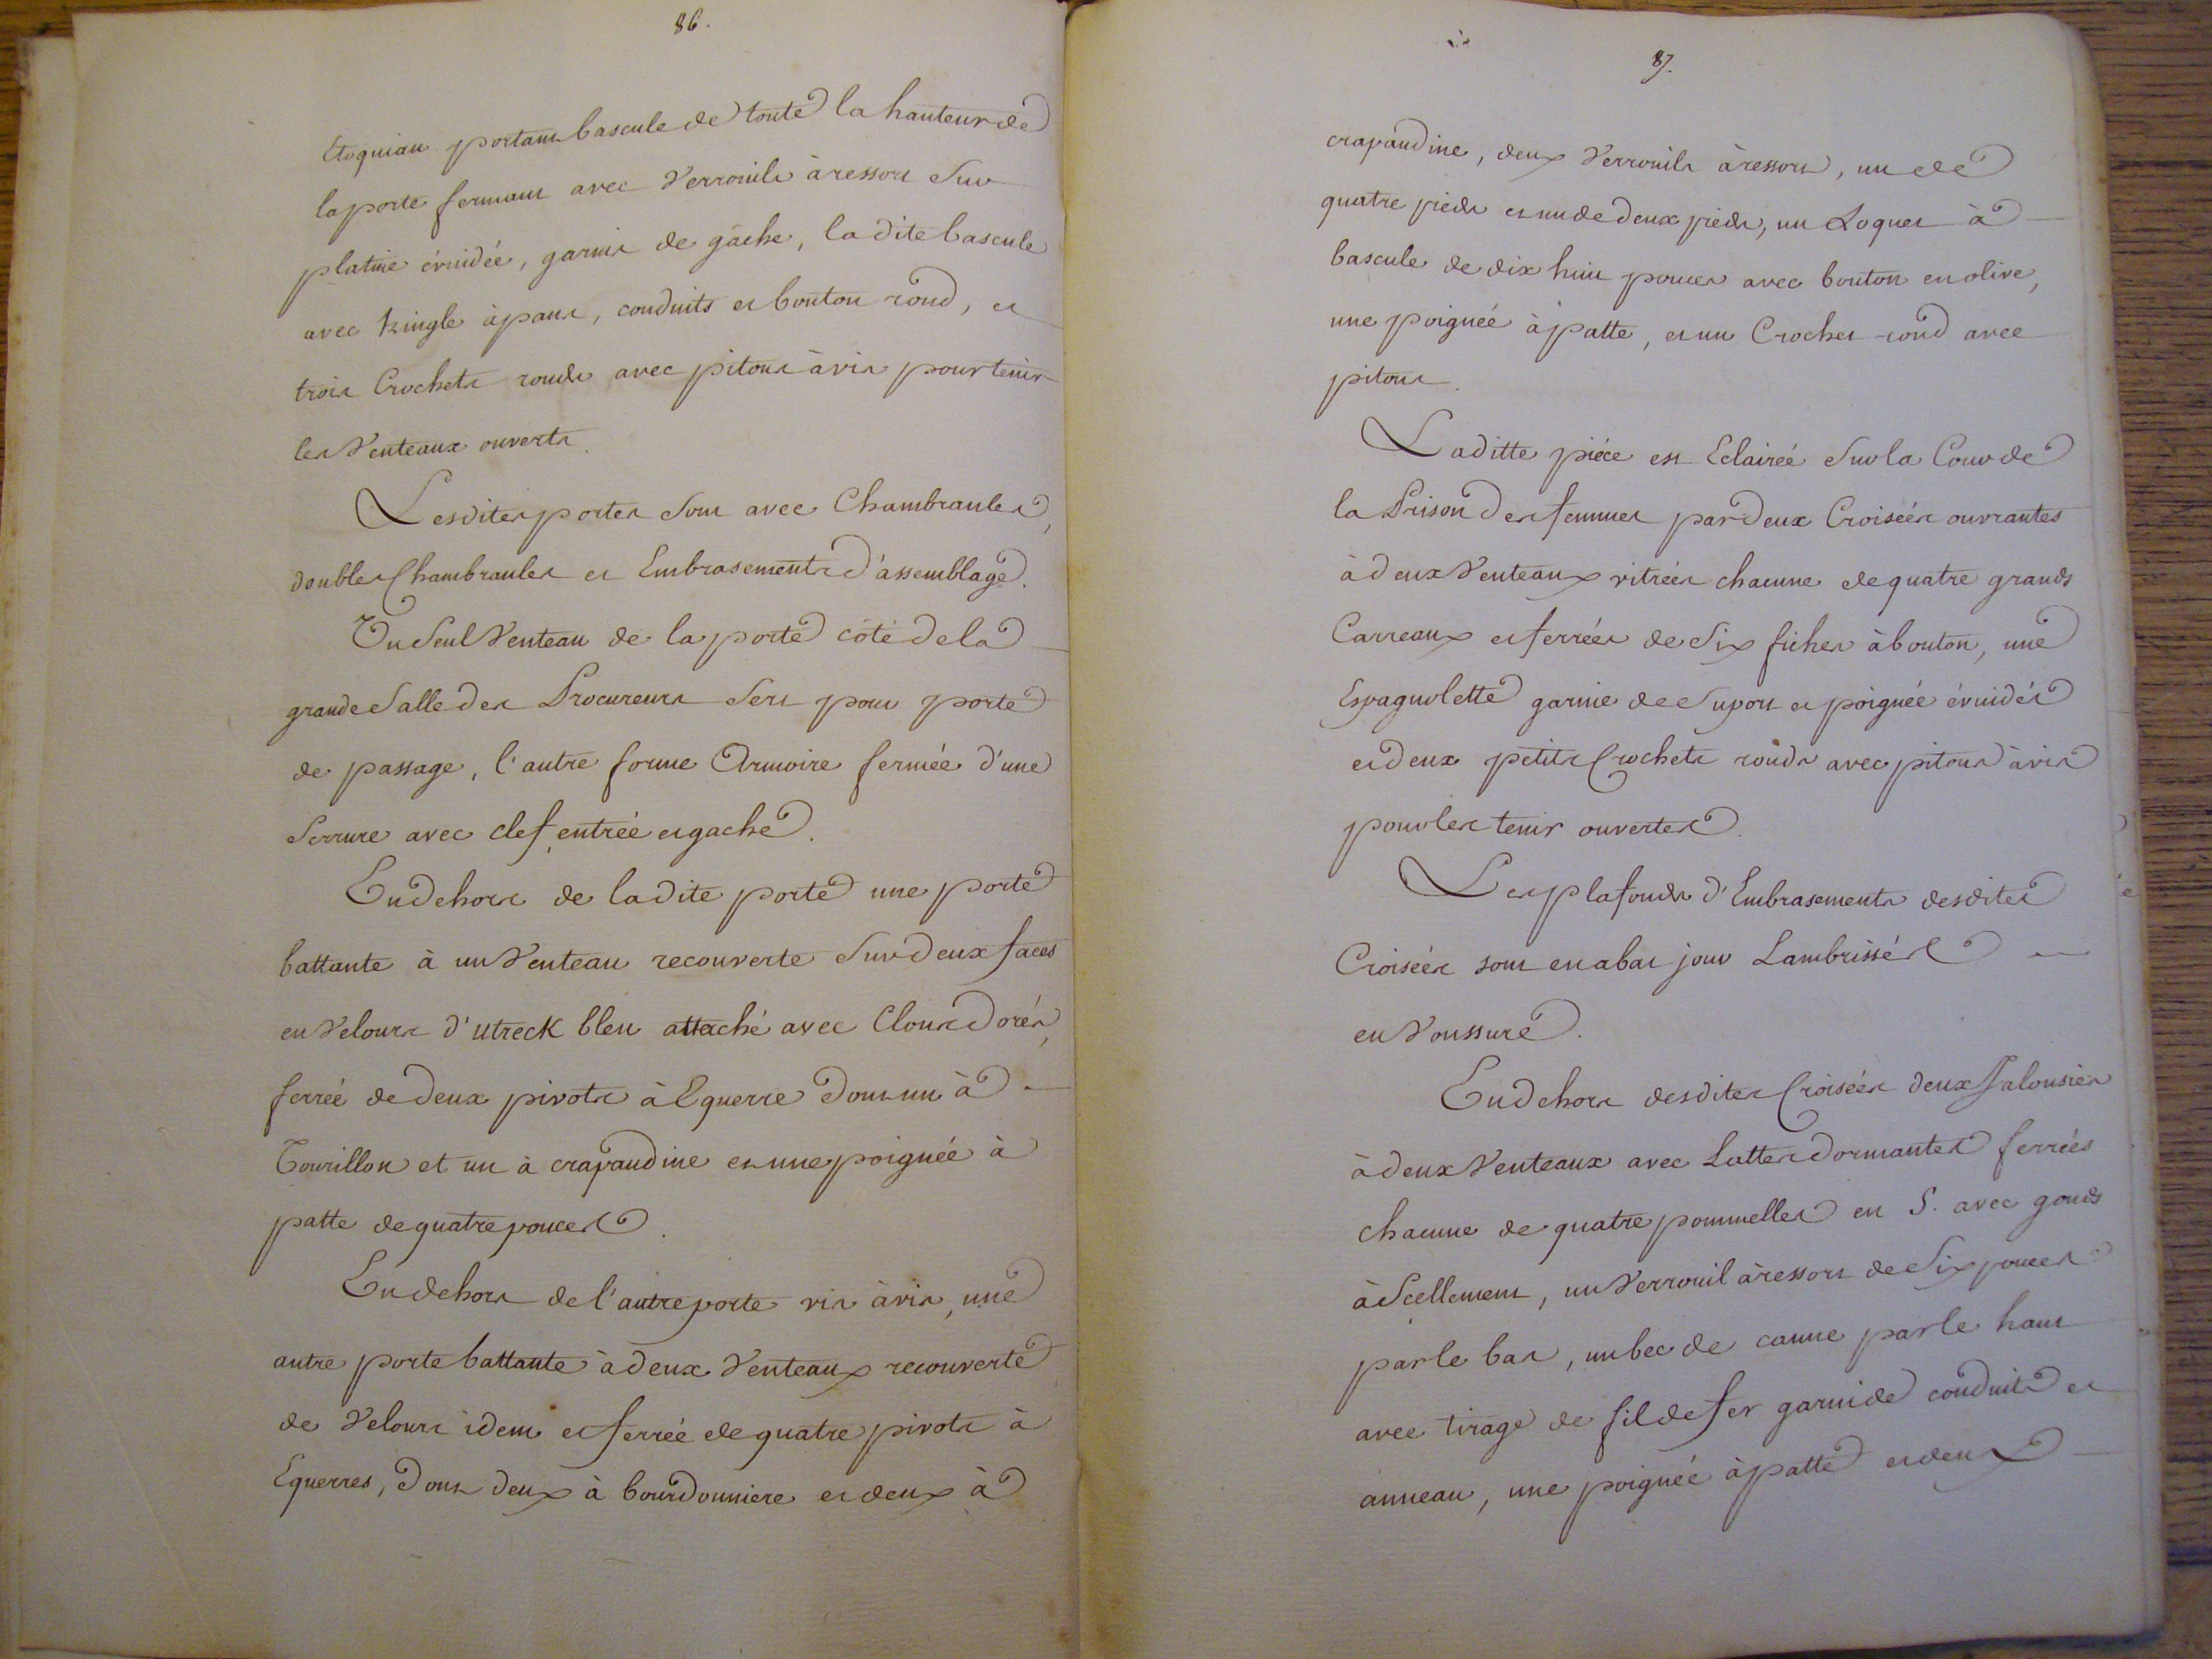 86.
Etoquiau portant bascule de toute la hauteur de
la porte fermant avec Verrouils à ressort Sur
platine évuidée, garnis de gâche, la dite bascule
avec tringle à pans, conduits et bouton rond, et
trois Crochets ronds avec pitons à vis pour tenir
les Venteaux ouverts.
Lesdites portes Sont avec Chambranles,
doubles Chambranles et Embrasements d'assemblage.
Un Seul Venteau de la porte côté de la
grande Salle des Procureurs Sert pour porte
de passage, l'autre forme Armoire fermée d'une
Serrure avec clef, entrée et gache.
En dehors de la dite porte une porte
battante à un Venteau recouverte Sur deux faces
en Velours d'utreck bleu attaché avec Clous dorés,
ferrée de deux pivots à Equerre dont un à
Tourillon et un à crapaudine et une poignée à
patte de quatre pouces.
En dehors de l'autre porte vis à vis, une
autre porte battante à deux Venteaux recouverte
de Velours idem et ferrée de quatre pivots à
Equerres, dont deux à bourdonniere et deux à
87.
crapaudine, deux Verrouils à ressort, un de
quatre pieds et un de deux pieds, un Loquet à
bascule de dix huit pouces avec bouton en olive,
une poignée à patte, et un Crochet rond avec
pitons.
Laditte piéce est Eclairée Sur la Cour de
la Prison des femmes par deux Croisées ouvrantes
à deux Venteaux vitrées chacune de quatre grands
Carreaux et ferrées de Six fiches à bouton, une
Espagnolette garnie de Suport et poignée évuidés
et deux petits Crochets ronds avec pitons à vis
pour les tenir ouvertes.
Les plafonds d'Embrasements desdites
Croisées sont en abat jour Lambrissés
en Voussure.
En dehors desdites Croisées deux Jalousies
à deux Venteaux avec Lattes dormantes ferrées
chacune de quatre pommelles en S. avec gonds
à Scellement, un Verrouil à ressort de Six pouces
par le bas, un bec de canne par le haut
avec tirage de fil de fer garni de conduits et
anneau, une poignée à patte et deux